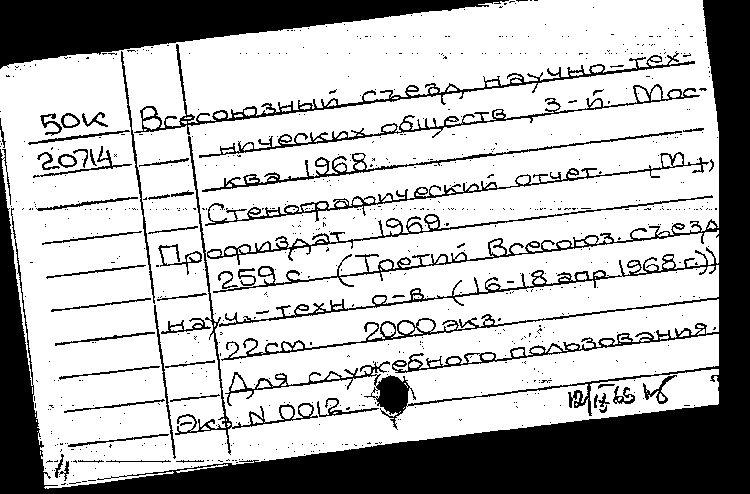 50К Всесоюзный съезд научно-тех-
20714 нических обществ, 3-й. Мос-
ква. 1968.
Стенографический отчет. [М.],
Профиздат, 1969.
259 с. (Третий Всесоюз. съезд
науч.-техн. о-в (16-18 апр 1968 г.))
22 см. 2000 экз.
Для служебного пользования.
Экз. N 0012.
4